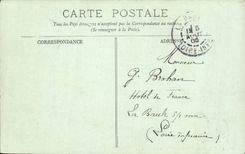 CARTE POSTALE
Tous les Pays étrangers n'acceptent pas la Correspondance au recto
(Se renseigner à la Poste)
CORRESPONDANCE
ADRESSE
LOIRE-INF
Monsieur
G. Brohan
Hôtel de France
La Baule s/mer
(Loire Inférieure)